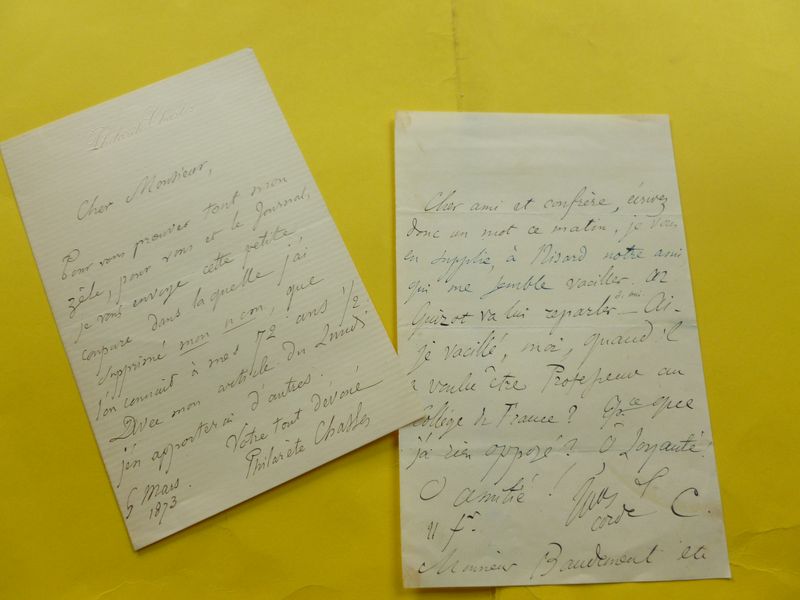 Philarète Chasles
Cher Monsieur,
Pour vous prouver tout mon
zèle, pour vous et le Journal,
je vous envoye cette petite
coupure dans laquelle j'ai
supprimé mon nom, que
l'on connait à mes 72 ans 1/2.
Avec mon article du Lundi
j'en apporterai d'autres.
Votre tout dévoué
Philarète Chasles
5 Mars
1873
Cher ami et confrère, écrivez
donc un mot ce matin, je vous
en supplie, à Nisard notre ami
qui me semble vaciller. Mr
Guizot va lui reparler de moi — Ai-
je vacillé, moi, quand il
a voulu être Professeur au
Collège de France? Est ce que
j'ai rien opposé? Ô Loyauté!
O amitié!
corde C.
11 fr.
Monsieur Baudement etc